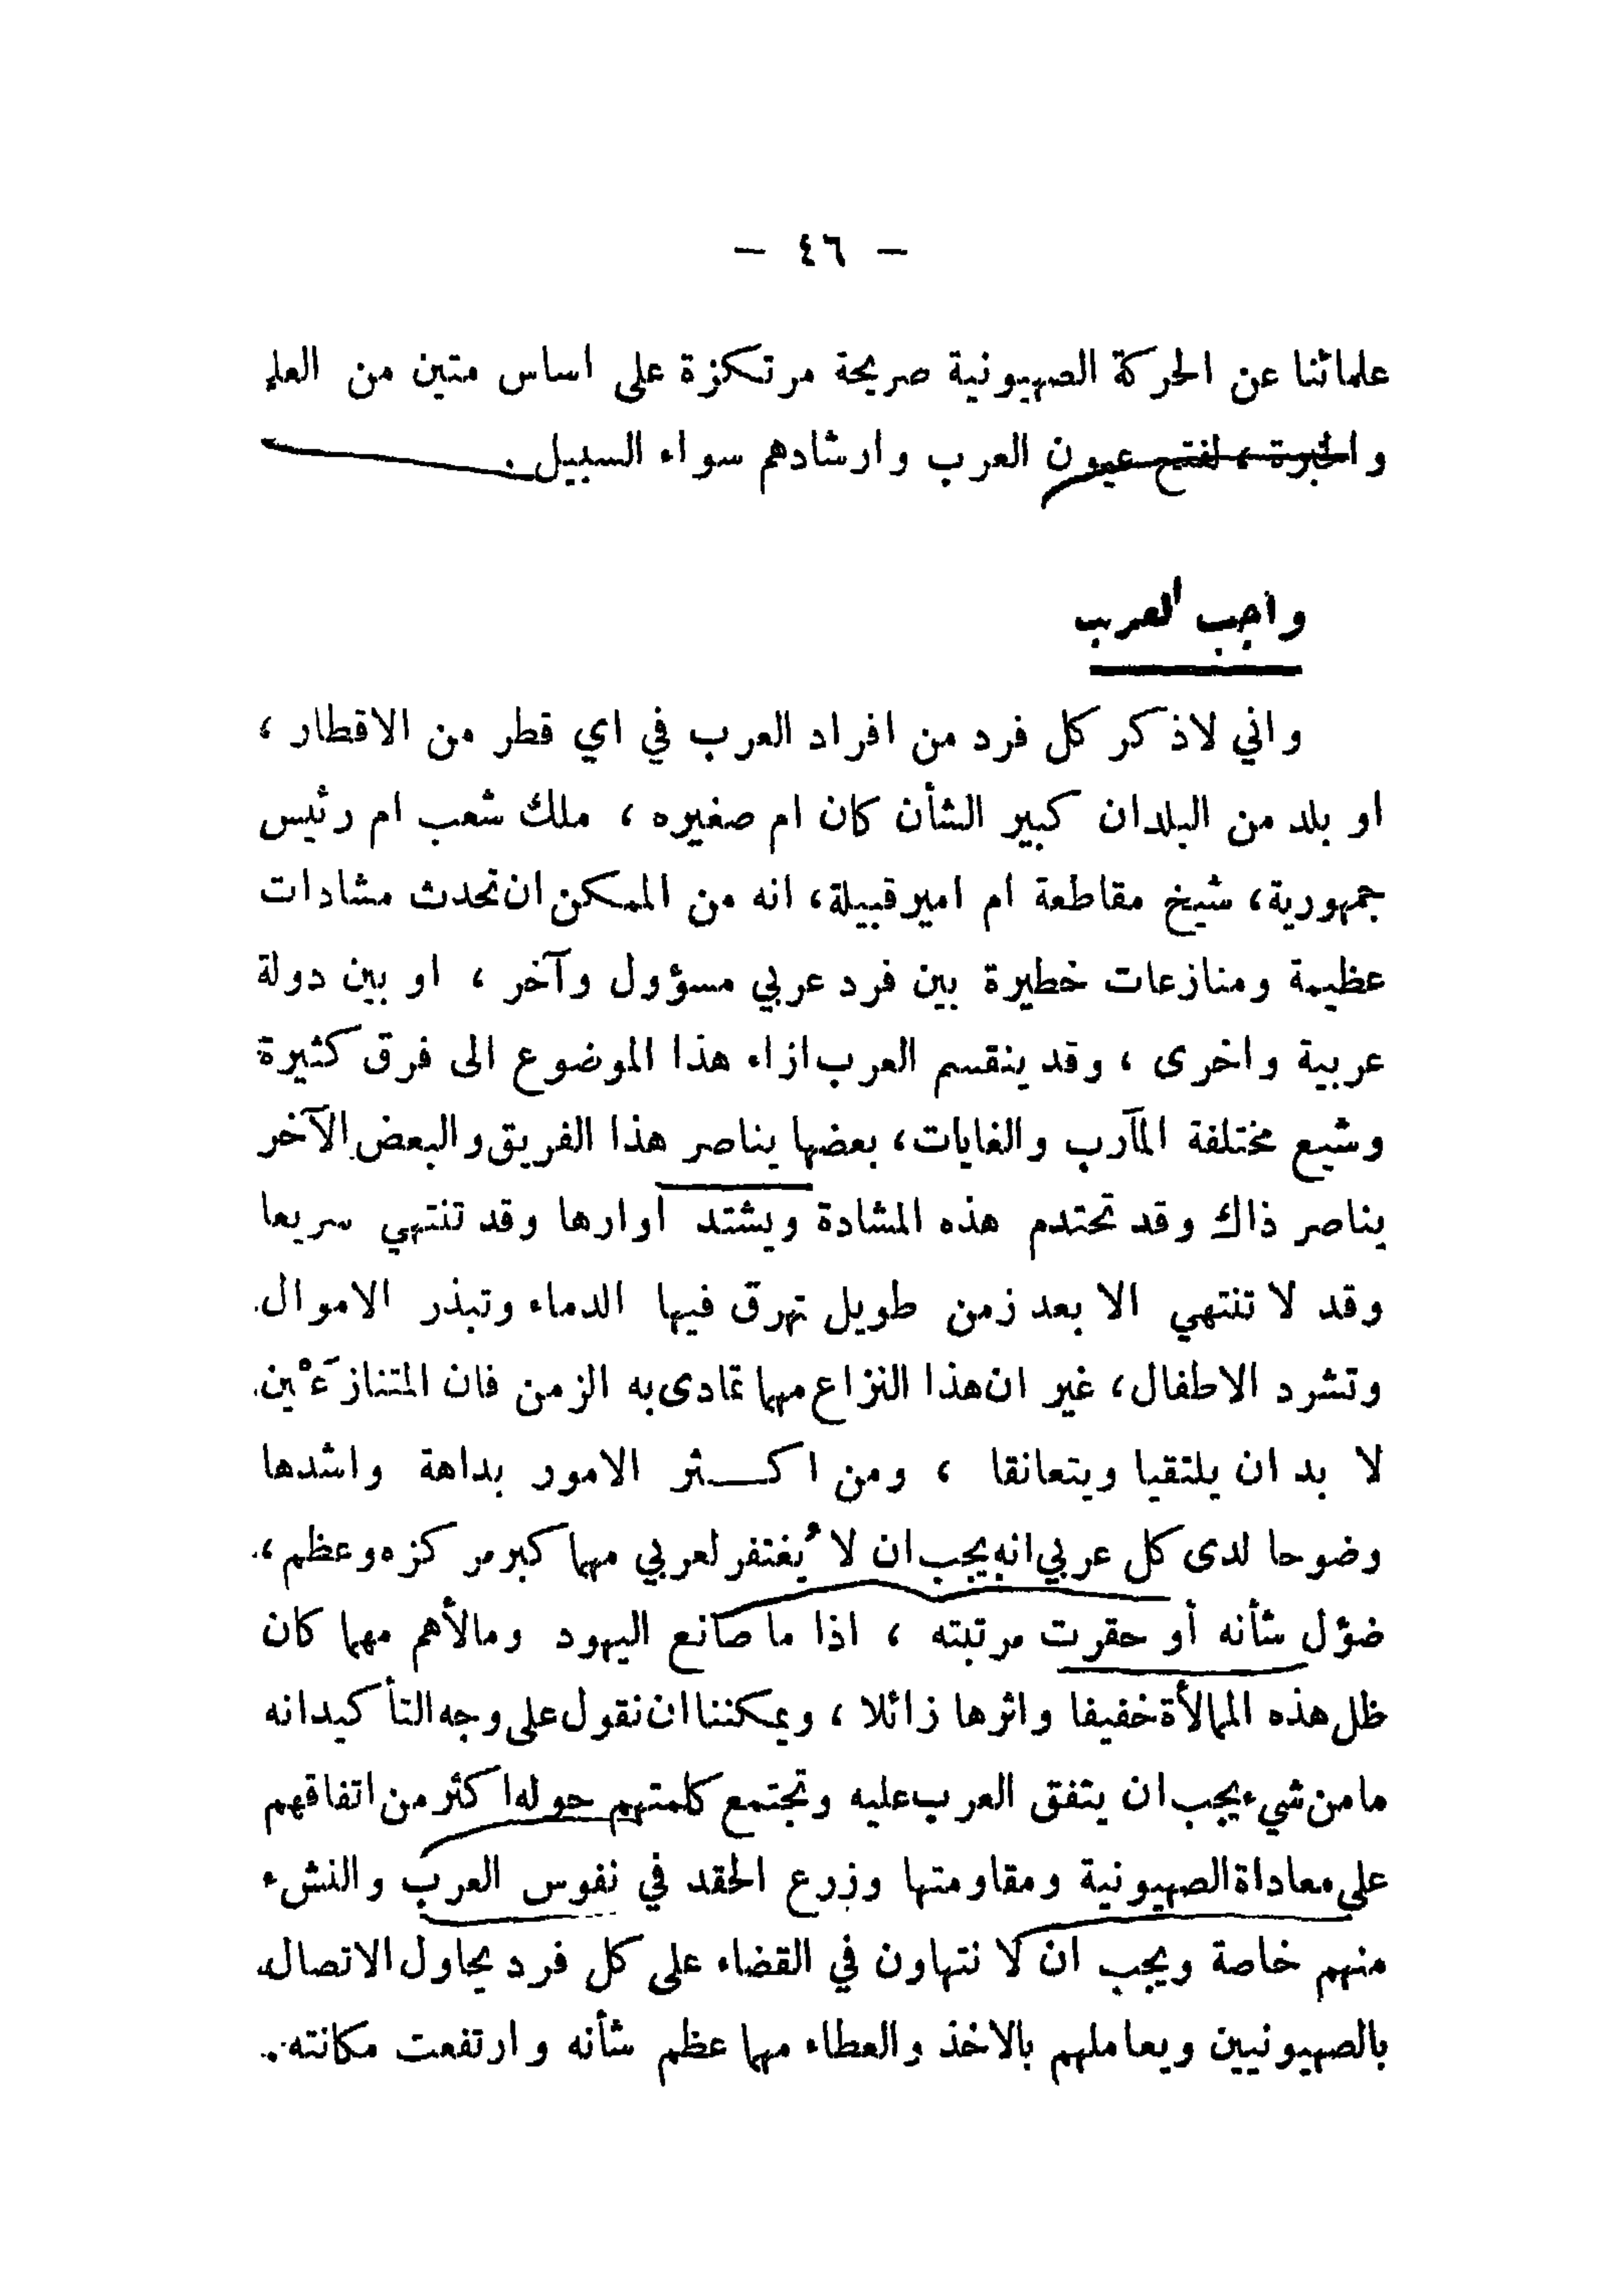 — ٤٦ —
علمائنا عن الحركة الصهيونية صريحة مرتكزة على اساس متين من العلم
والخبرة ، لفتح عيون العرب وارشادهم سواء السبيل .
واجب العرب
واني لاذكر كل فرد من افراد العرب في اي قطر من الاقطار ،
او بلد من البلدان كبير الشأن كان ام صغيره ، ملك شعب ام رئيس
جمهورية ، شيخ مقاطعة ام امير قبيلة ، انه من الممكن ان تحدث مشادات
عظيمة ومنازعات خطيرة بين فرد عربي مسؤول وآخر ، او بين دولة
عربية واخرى ، وقد ينقسم العرب ازاء هذا الموضوع الى فرق كثيرة
وشيع مختلفة المآرب والغايات ، بعضها يناصر هذا الفريق والبعض الآخر
يناصر ذاك وقد تحتدم هذه المشادة ويشتد اوارها وقد تنتهي سريعا
وقد لا تنتهي الا بعد زمن طويل تهرق فيها الدماء وتبذر الاموال
وتشرد الاطفال ، غير ان هذا النزاع مهما تمادى به الزمن فان المتنازَعْين
لا بد ان يلتقيا ويتعانقا ، ومن اكـــثر الامور بداهة واشدها
وضوحا لدى كل عربي انه يجب ان لا يُغتفر لعربي مهما كبر مركزه وعظم ،
ضؤل شأنه أو حقرت مرتبته ، اذا ما صانع اليهود ومالأهم مهما كان
ظل هذه الممالأة خفيفا واثرها زائلا ، ويمكننا ان نقول على وجه التأكيد انه
ما من شيء يجب ان يتفق العرب عليه وتجتمع كلمتهم حوله اكثر من اتفاقهم
على معاداة الصهيونية ومقاومتها وزرع الحقد في نفوس العرب والنشء
منهم خاصة ويجب ان لا نتهاون في القضاء على كل فرد يحاول الاتصال
بالصهيونيين ويعاملهم بالاخذ والعطاء مهما عظم شأنه وارتفعت مكانته .